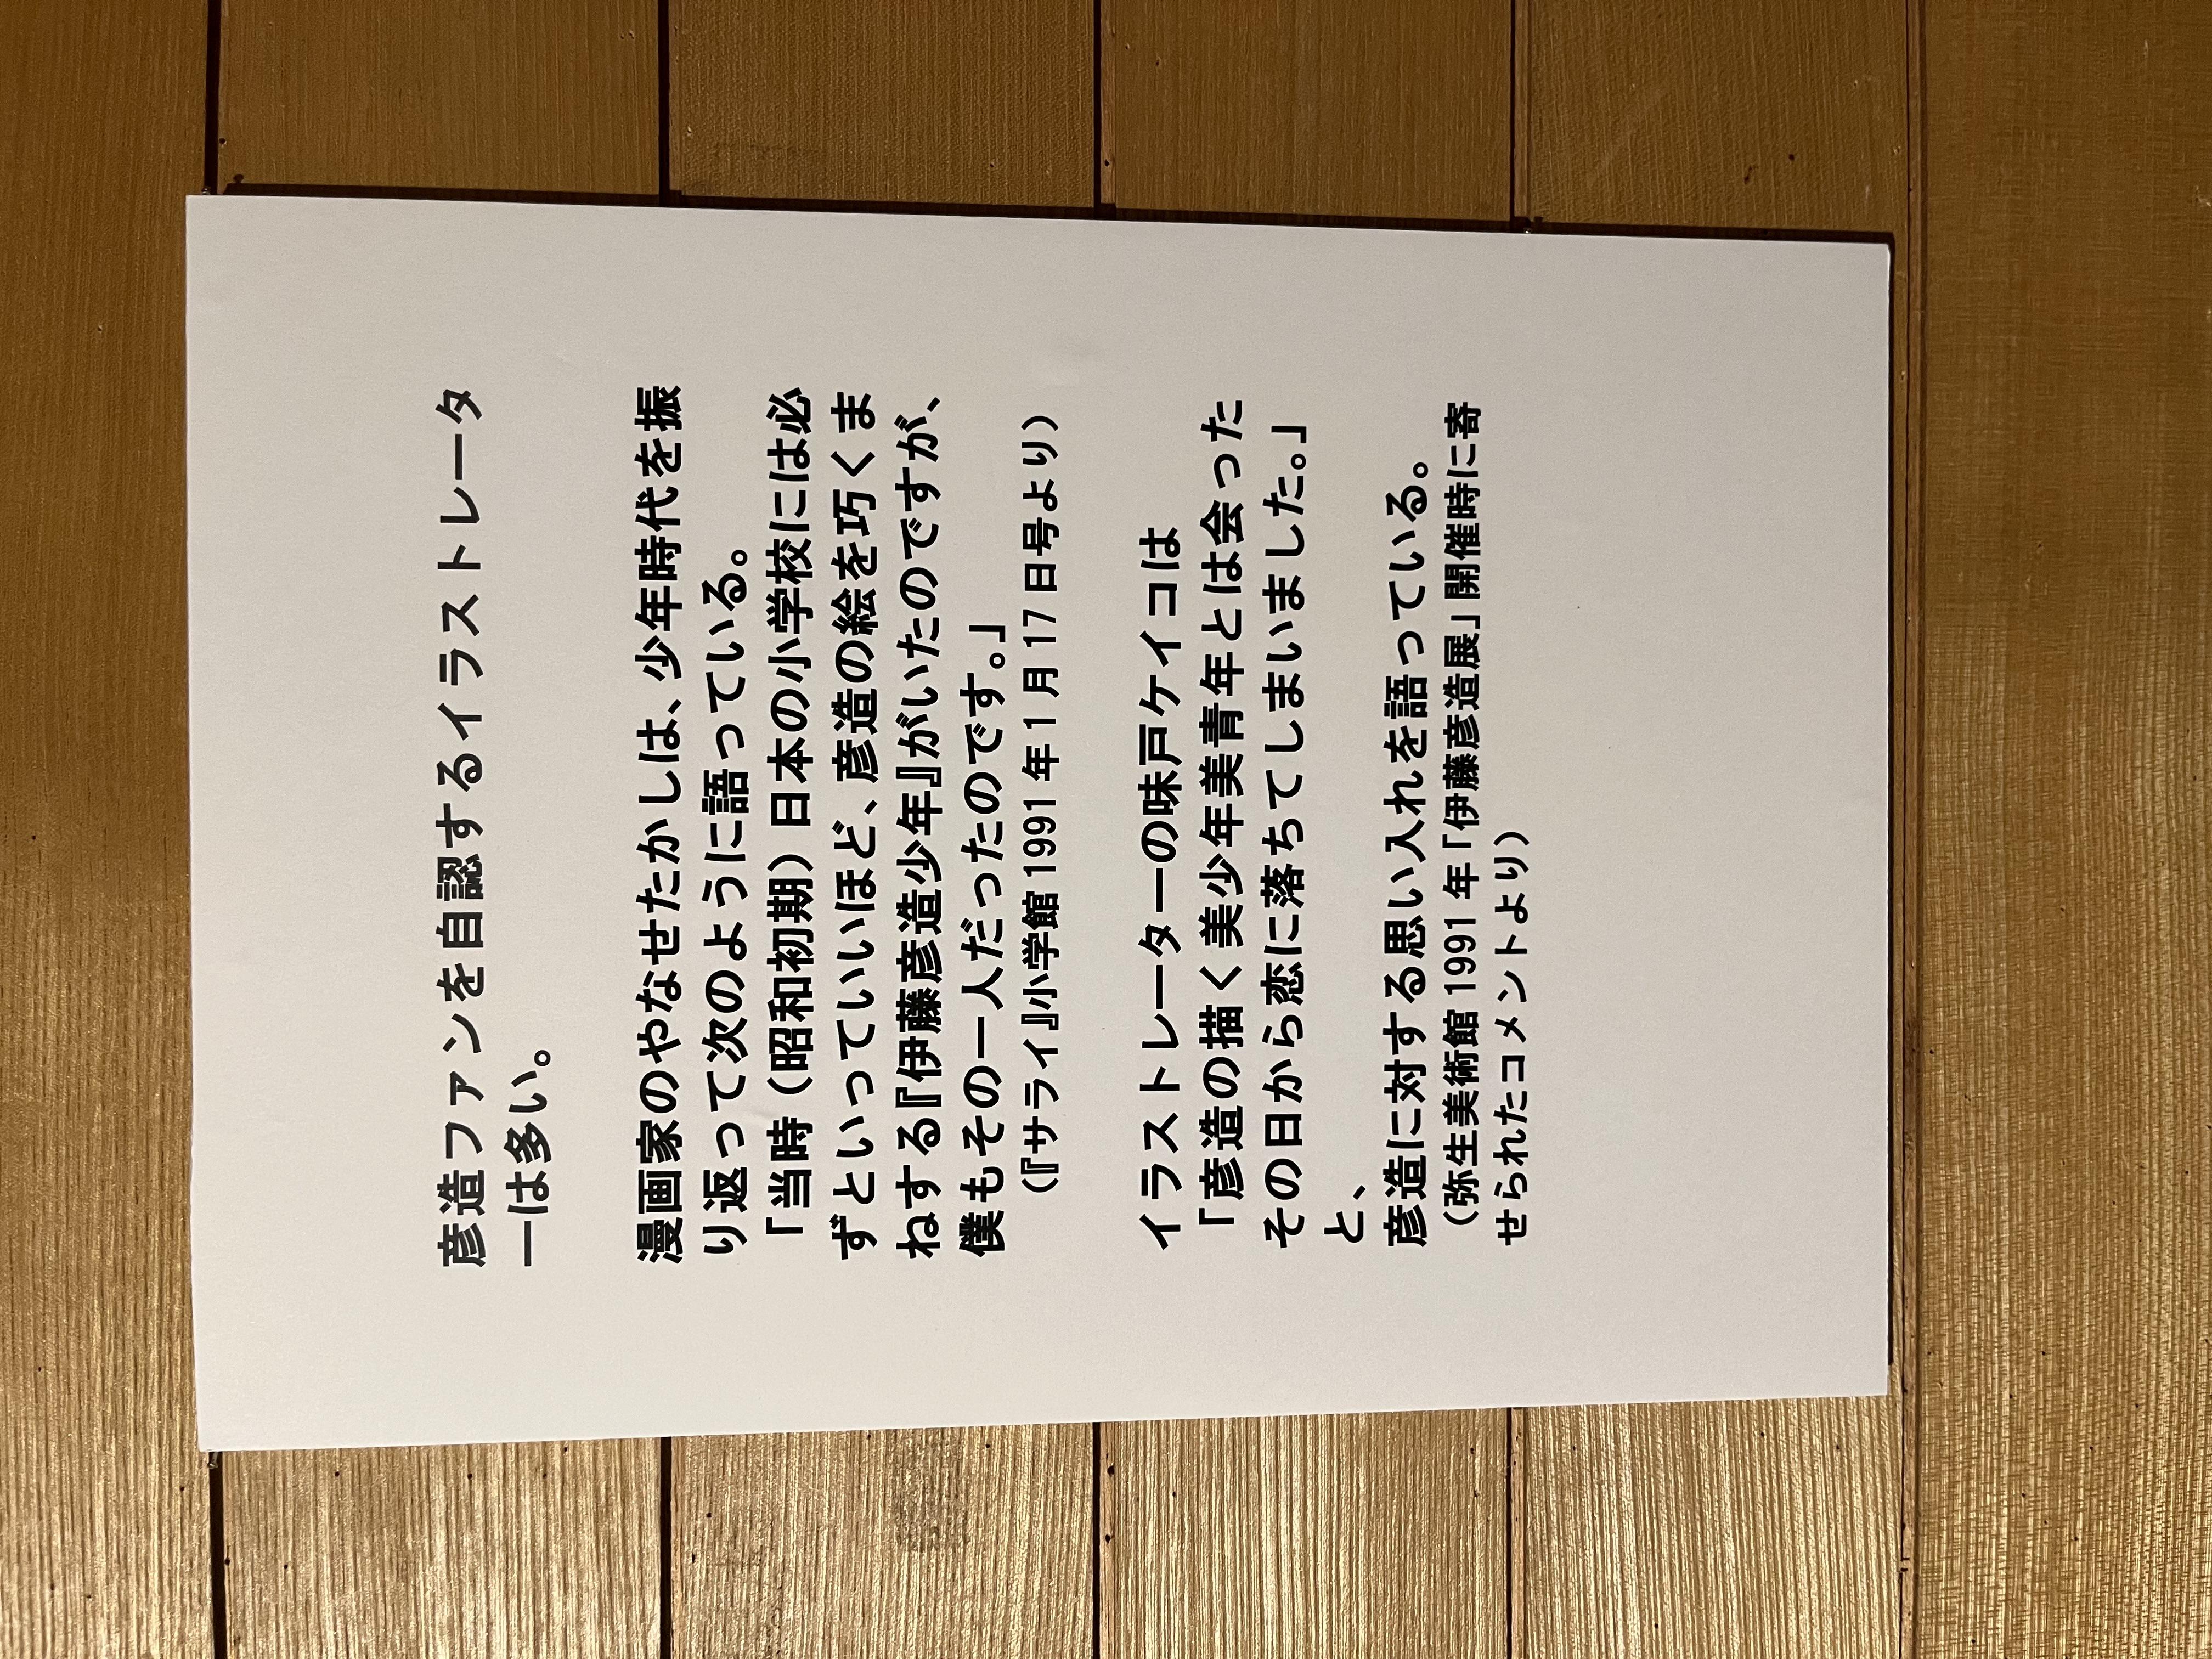 彦造ファンを自認するイラストレータ
ーは多い。
漫画家のやなせたかしは、少年時代を振
り返って次のように語っている。
「当時（昭和初期）日本の小学校には必
ずといっていいほど、彦造の絵を巧くま
ねする『伊藤彦造少年』がいたのですが、
僕もその一人だったのです。」
（『サライ』小学館 1991 年 1 月 17 日号より）
イラストレーターの味戸ケイコは
「彦造の描く美少年美青年とは会った
その日から恋に落ちてしまいました。」
と、
彦造に対する思い入れを語っている。
（弥生美術館 1991 年「伊藤彦造展」開催時に寄
せられたコメントより）